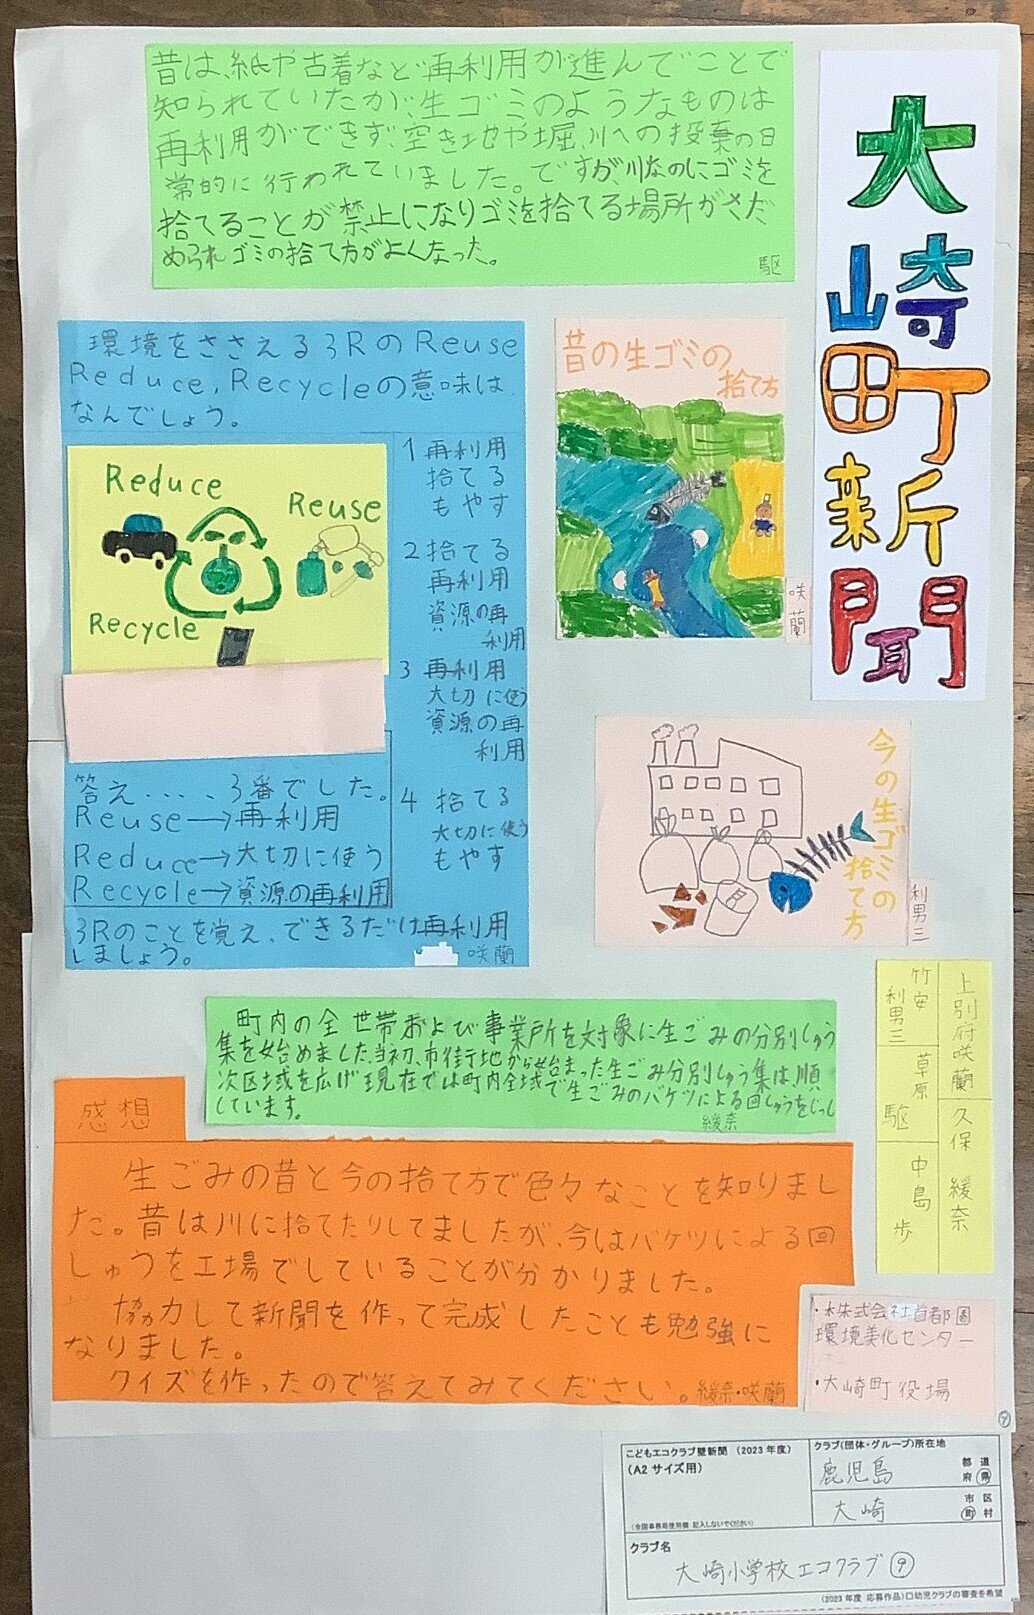 大崎町新聞
昔は、紙や古着など再利用が進んでことで
知られていたが、生ゴミのようなものは
再利用ができず、空き地や堀、川への投棄の日
常的に行われていました。ですが川なのにゴミを
捨てることが禁止になりゴミを捨てる場所がさだ
められゴミの捨て方がよくなった。
駆
昔の生ゴミの
捨て方
咲蘭
環境をささえる3RのReuse
Reduce,Recycleの意味は
なんでしょう。
Reduce
Reuse
Recycle
1 再利用
捨てる
もやす
2 捨てる
再利用
資源の再
利用
3 再利用
大切に使う
資源の再
利用
4 捨てる
大切に使う
もやす
答え....3番でした。
Reuse→再利用
Reduce→大切に使う
Recycle→資源の再利用
3Rのことを覚え、できるだけ再利用
しましょう。
咲蘭
今の生ゴミの
捨て方
利男三
町内の全世帯および事業所を対象に生ごみの分別しゅう
集を始めました。当初、市街地から始まった生ごみ分別しゅう集は順
次区域を広げ現在では町内全域で生ごみのバケツによる回しゅうをじっし
しています。
綾奈
上別府咲蘭
久保 綾奈
竹安 利男三
草原 駆
中島 歩
感想
生ごみの昔と今の捨て方で色々なことを知りまし
た。昔は川に捨てたりしてましたが、今はバケツによる回
しゅうを工場でしていることが分かりました。
協力して新聞を作って完成したことも勉強に
なりました。
クイズを作ったので答えてみてください。綾奈・咲蘭
・株式会社首都圏
環境美化センター
・大崎町役場
⑨
こどもエコクラブ壁新聞 (2023年度)
(A2サイズ用)
(全国事務局使用欄 記入しないでください)
クラブ(団体・グループ)所在地
鹿児島 都道府県
大崎 市区町村
クラブ名
大崎小学校エコクラブ⑨
(2023年度 応募作品)□幼児クラブの審査を希望